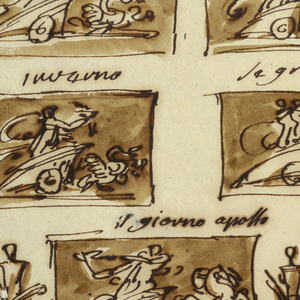 inverno
il giorno apollo